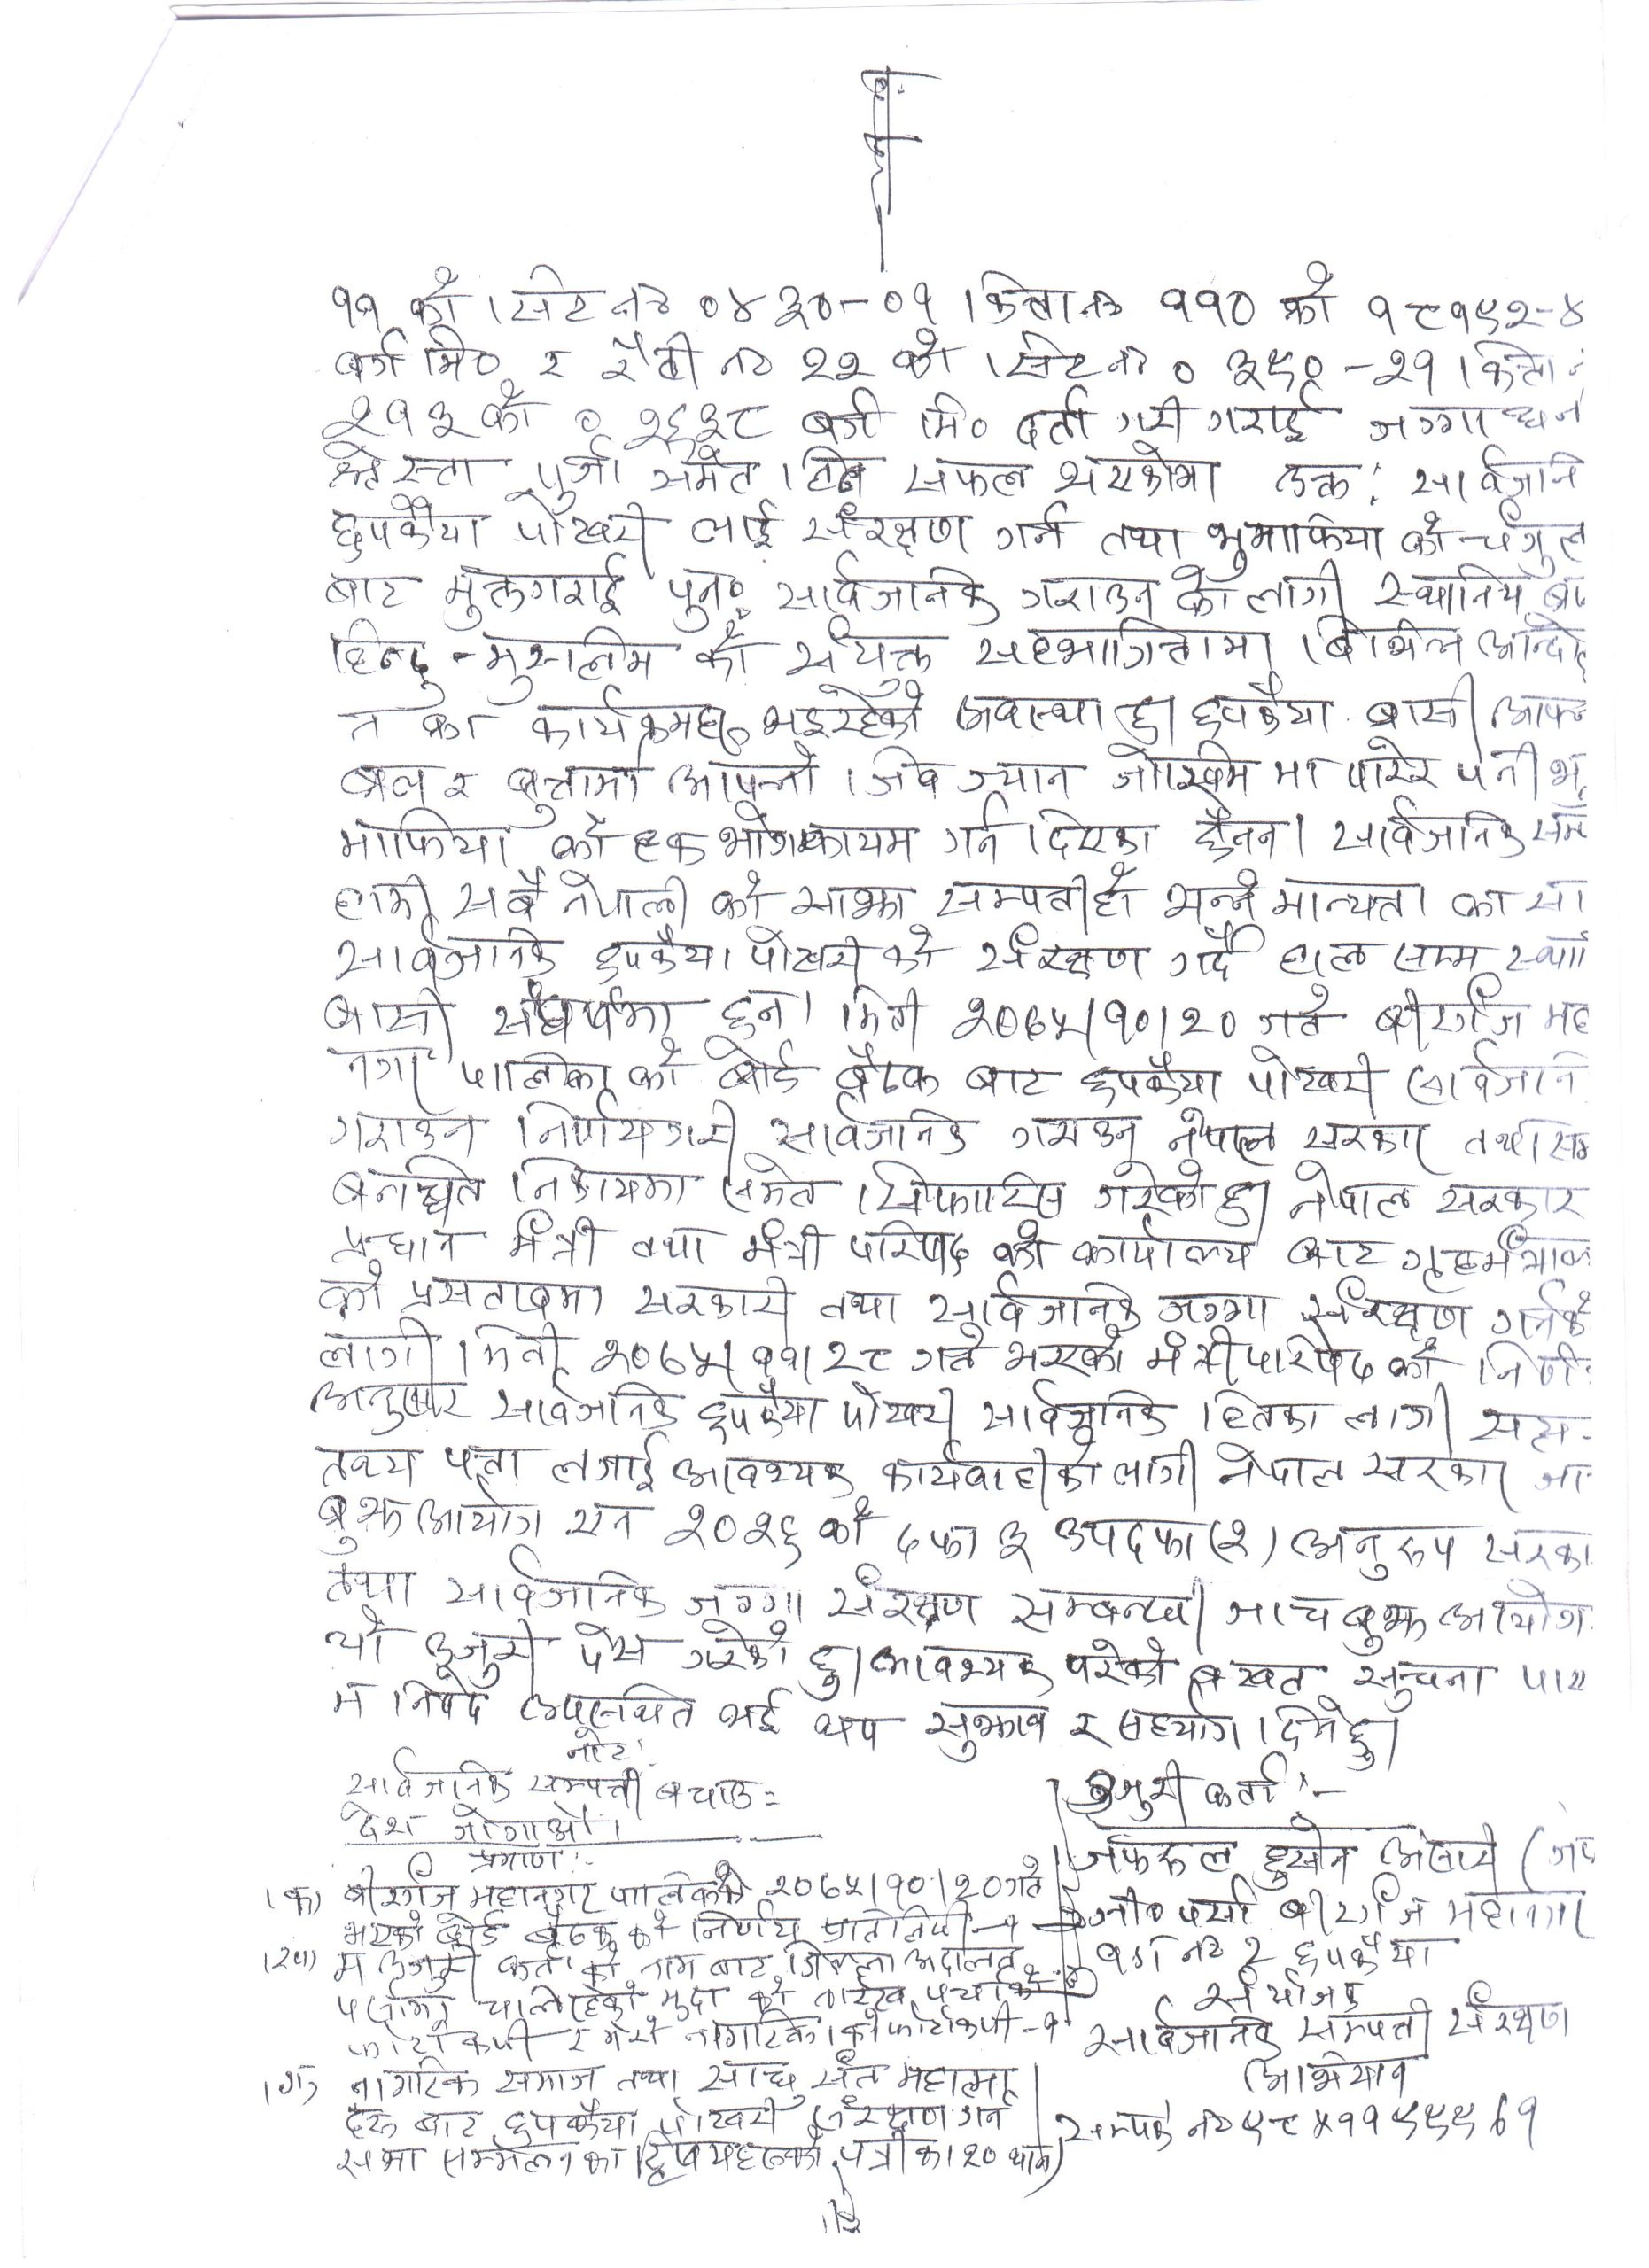 ११ को सिट नं० ०४३०-०१ कित्ता नं० ११० को १८१९२-४
बर्ग मि० र सैठी नं० २२ को सिट नं० ०३९१-२१ कित्ता
२१३ को ०२६३८ बर्ग मि० दर्ता गरी गराई जग्गा धनी
श्रेस्ता पुर्जा समेत लिन सफल भएकोमा उक्त सार्वजनि
छपकैया पोखरी लाई संरक्षण गर्न तथा भुमाफिया को चंगुल
बाट मुक्तगराई पुनः सार्वजानिक गराउन को लागी स्थानिय
हिन्दु-मुसलीम को संयुक्त सहभागितामा बिभिन्न आन्दोल
न का कार्यक्रमहरु भइरहेको अवास्था छ। छपकैया बासी आफ्नो
बल र बुत्तामा आफ्नो जिव ज्यान जोखिम मा पारेर पनी भु
माफिया को हक भोग कायम गर्न दिएका छैनन। सार्वजानिक सम
हामी सबै नेपाली को साझा सम्पतीहो भन्ने मान्यता का सा
सार्वजानिक छपकैया पोखरी को संरक्षण गर्दै हाल सम्म स्थानी
बासी संघर्षमा छन। मिती २०७५।१०।२० गते बीरगंज महा
नगर पालिका को बोर्ड बैठक बाट छपकैया पोखरी सार्वजानि
गराउन निर्णयगरी सार्वजानिक गराउनु नेपाल सरकार तथा सम
बनाधित निकायमा समेत सिफारिस गरेको छ। नेपाल सरकार
प्रधान मंत्री तथा मंत्री परिषद को कार्यालय बाट गृहमंत्राल
को प्रसताबमा सरकारी तथा सार्वजानिक जग्गा संरक्षण गर्नको
लागी मिती २०७५।११।२८ गते भएको मंत्री परिषद को निर्ण
अनुसार सार्वजानिक छपकैया पोखरी सार्वजनिक हितका लागी सत्य-
तथ्य पत्ता लगाई आवश्यक कार्यवाहीको लागी नेपाल सरकार जा
बुझ आयोग एन २०२६ को दफा ३ उपदफा (२) अनुरुप सरका
तथा सार्वजानिक जग्गा संरक्षण सम्बन्धी जाचबुझ आयोग
यो उजुरी पेस गरेको छु। आवश्यक परेको बखत सुचना पाए
म निवेदक उपस्थित भई थप सुझाव र सहयोग दिनेछु।
नोट:
सार्वजानिक सम्पत्ती बचाउ=
देश जोगाऔ।
प्रमाण:-
उजुरी कर्ता:-
(क) बीरगंज महानगर पालिकाको २०७५।१०।२० गते
भएको बोर्ड बैठक को निर्णय प्रतिलिपी-१
(ख) म उजुरी कर्ता को नाम बाट जिल्ला अदालत
पर्सामा चालिरहेको मुद्दा को तारेख पर्चाको
फोटोकपी र मेरो नागरिकताको फोटोकपी-१
(ग) नागरिक समाज तथा साधु संत महात्मा
हरु बाट छपकैया पोखरी संरक्षण गर्न
सभा सम्मेलन का पत्रीका १० थान
हुसेन अंसारी
जी० पर्सा बीरगंज महानगर
वर्ग नं० २ छपकैया
संयोजक
सार्वजानिक सम्पत्ती संरक्षण
अभियान
सम्पर्क नं० ९८५११९९९७१